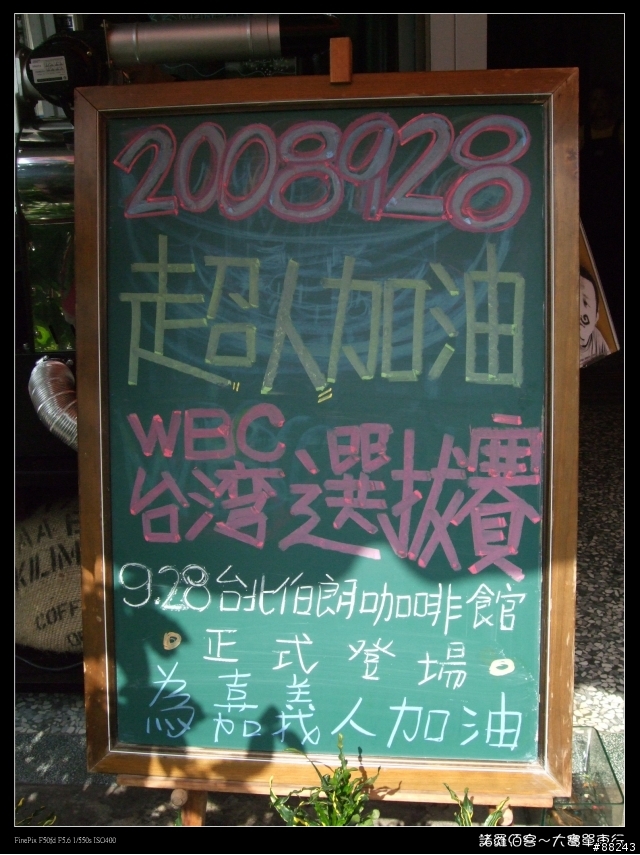 2008928
超人加油
WBC
台湾選拔賽
9.28台北伯朗咖啡館
正式登場
為嘉義人加油
KILIM
COFF
FinePix F50fd F5.6 1/550s ISO400
諸羅佰客～大寶單車行
#88243